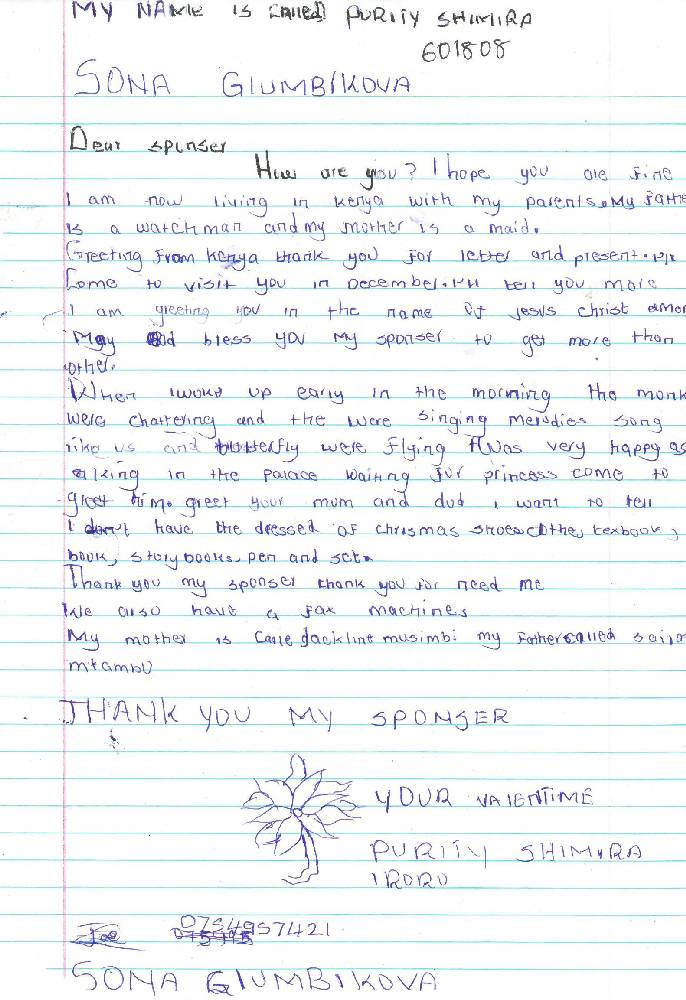 MY NAME IS CALLED PURITY SHIMIRA
601808
SONA GLUMBIKOVA
Dear sponser
How are you? I hope you are fine
I am now living in kenya with my parents. My fathe
is a watchman and my mother is a maid.
Greeting from kenya thank you for letter and present.
Come to visit you in December. I'll tell you more
I am greeting you in the name of jesus christ amen
May God bless you my sponser to get more than
other.
When I woke up early in the morning the monk
were chattering and the were singing melodies song
like us and butterfly were flying I was very happy as
alking in the palace waiting for princess come to
greet him. greet your mum and dud I want to tell
I don't have the dressed of chrismas shoes clothe, texbook,
book, story books, pen and set.
Thank you my sponser thank you for need me
We also have a fax machines
My mother is calle Jackline musimbi my father called
mtambu
THANK YOU MY SPONSER
YOUR VALENTIME
PURITY SHIMIRA
IRORU
Joe 0754957421
SONA GLUMBIKOVA